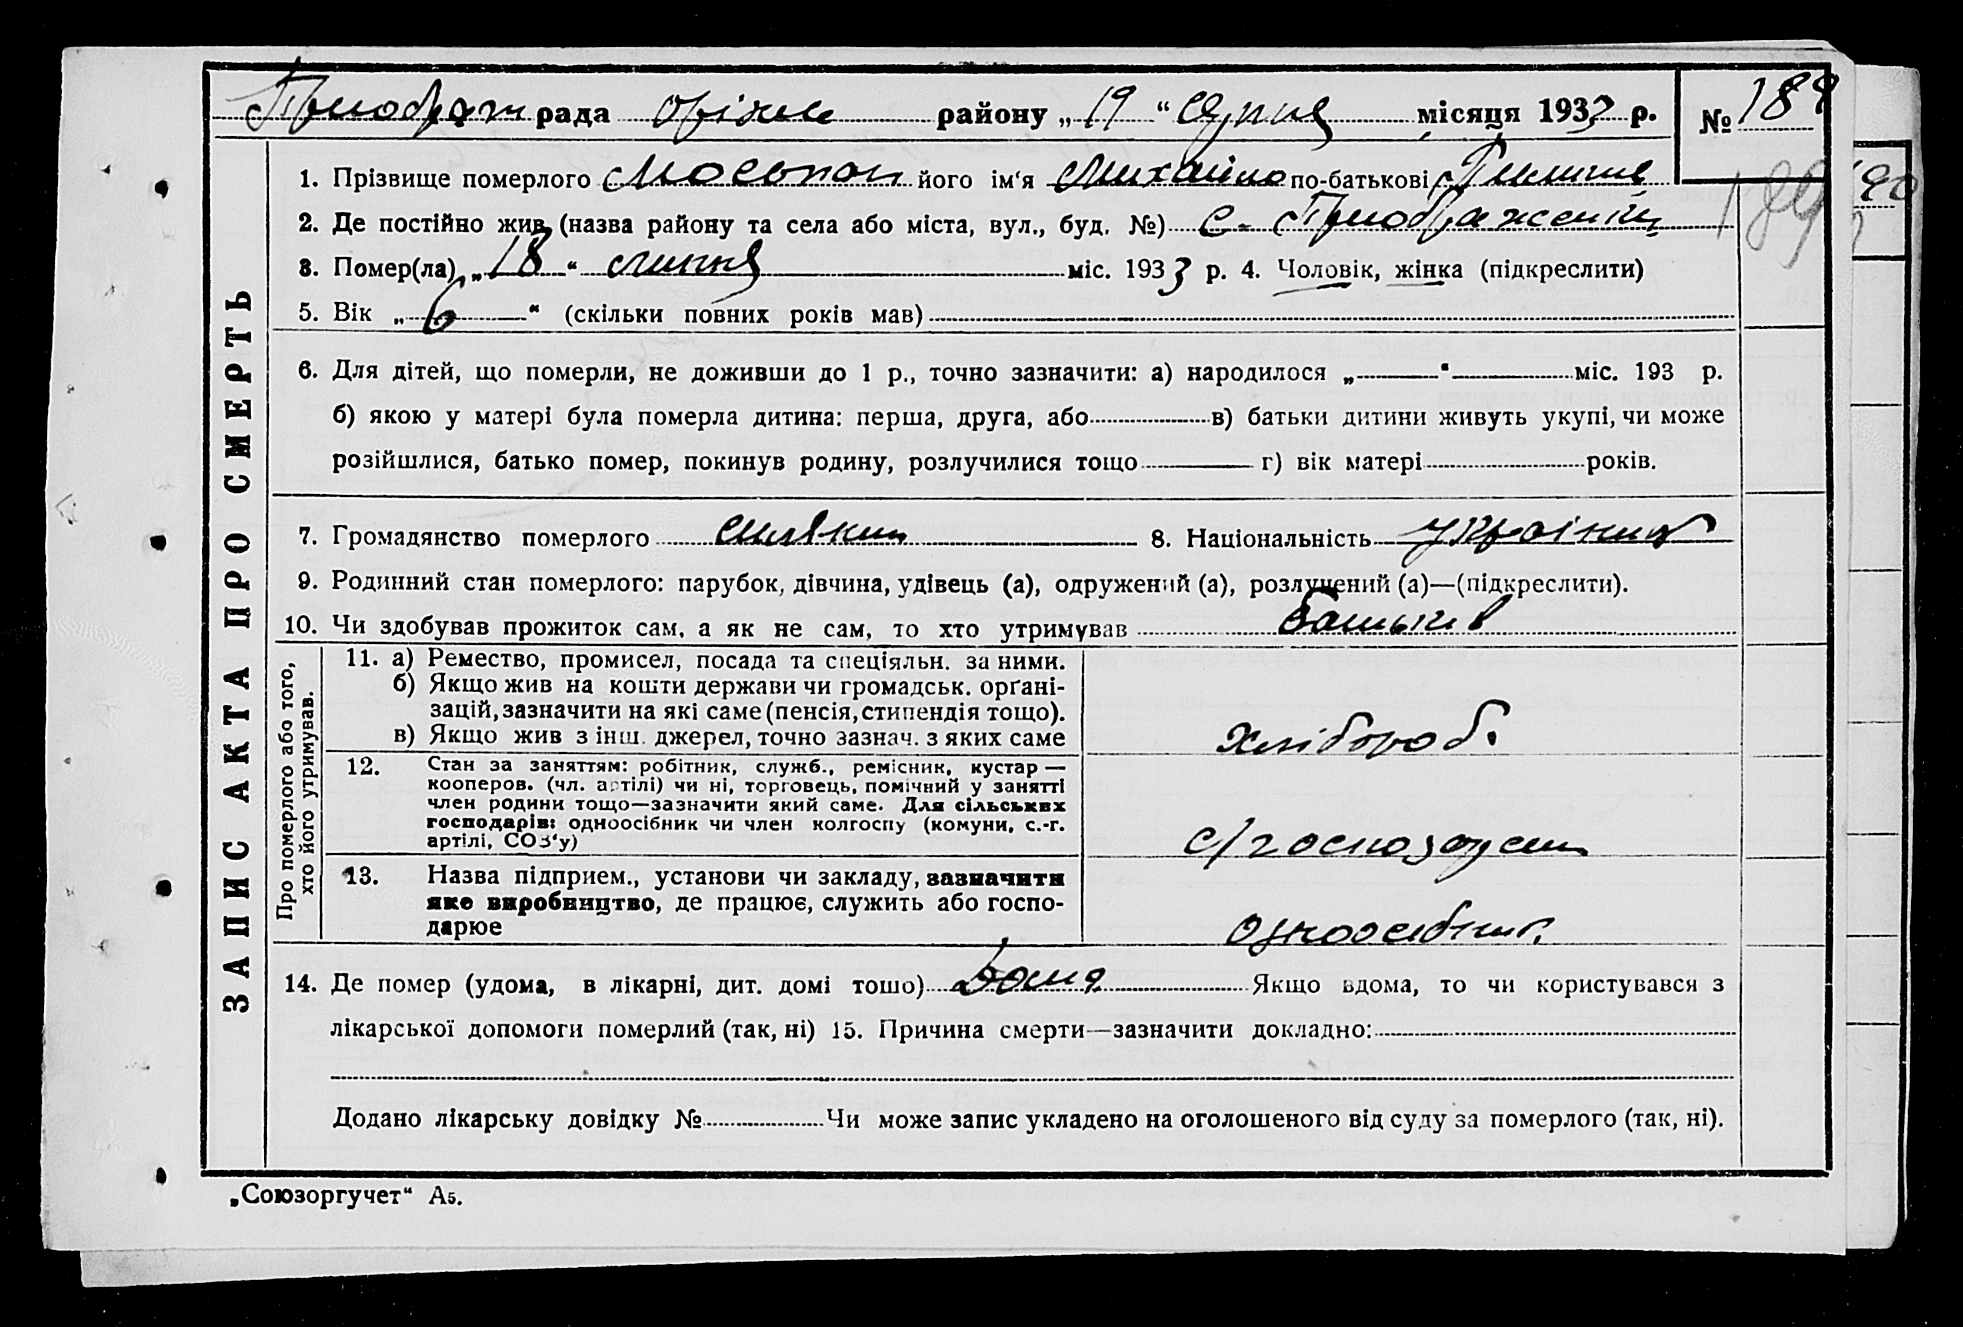 Преображ рада Оріхів району „19“ серпня місяця 1933 р. № 189
189
190
ЗАПИС АКТА ПРО СМЕРТЬ
1. Прізвище померлого його ім'я Михайло по-батькові
2. Де постійно жив (назва району та села або міста, вул., буд. №) С. Преображенка
3. Помер(ла) „18“ липня міс. 1933 р. 4. Чоловік, жінка (підкреслити)
5. Вік „6“ (скільки повних років мав)
6. Для дітей, що померли, не доживши до 1 р., точно зазначити: а) народилося „ “ міс. 193 р.
б) якою у матері була померла дитина: перша, друга, або в) батьки дитини живуть укупі, чи може
розійшлися, батько помер, покинув родину, розлучилися тощо г) вік матері років.
7. Громадянство померлого 8. Національність
9. Родинний стан померлого: парубок, дівчина, удівець (а), одружений (а), розлучений (а)—(підкреслити).
10. Чи здобував прожиток сам, а як не сам, то хто утримував батьків
Про померлого або того,
хто його утримував.
11. а) Ремество, промисел, посада та спеціяльн. за ними.
б) Якщо жив на кошти держави чи громадськ. орґані-
зацій, зазначити на які саме (пенсія, стипендія тощо).
в) Якщо жив з інш. джерел, точно зазнач. з яких саме
хлібороб.
12. Стан за заняттям: робітник, служб., ремісник, кустар —
кооперов. (чл. артілі) чи ні, торговець, помічний у занятті
член родини тощо—зазначити який саме. Для сільських
господарів: одноосібник чи член колгоспу (комуни, с.-г.
артілі, СОЗ'у)
13. Назва підприєм., установи чи закладу, зазначити
яке виробництво, де працює, служить або госпо-
дарює
одноосібник.
14. Де помер (удома, в лікарні, дит. домі тощо) Дома Якщо вдома, то чи користувався з
лікарської допомоги померлий (так, ні) 15. Причина смерти—зазначити докладно:
Додано лікарську довідку № Чи може запис укладено на оголошеного від суду за померлого (так, ні).
„Союзоргучет“ А5.